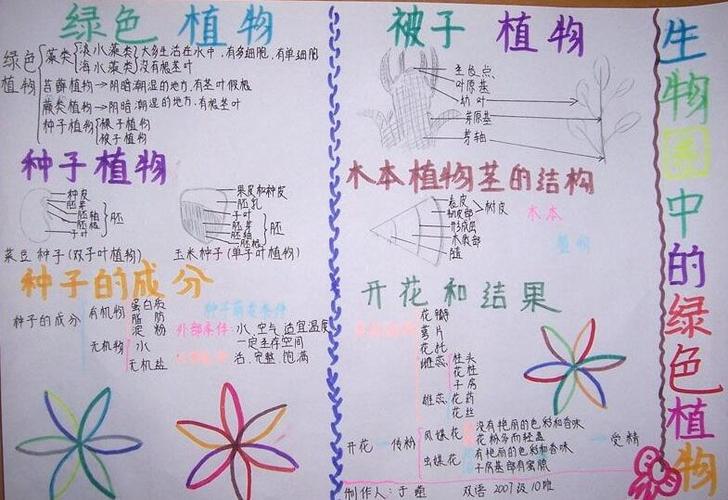 绿色 植物
绿色植物
藻类
淡水藻类
海水藻类
大多生活在水中，有多细胞，有单细胞
没有根茎叶
苔藓植物→阴暗潮湿的地方，有茎叶假根
蕨类植物→阴暗潮湿的地方，有根茎叶
种子植物
裸子植物
被子植物
种子植物
种皮
胚芽
胚轴
胚根
子叶
胚
菜豆种子(双子叶植物)
果皮和种皮
胚乳
子叶
胚芽
胚轴
胚根
胚
玉米种子(单子叶植物)
种子的成分
种子的成分
有机物
蛋白质
脂肪
淀粉
无机物
水
无机盐
种子萌发条件
外部条件：水、空气 适宜温度
一定生存空间
活、完整 饱满
被子 植物
生长点
叶原基
幼叶
芽原基
芽轴
木本植物茎的结构
树皮
形成层
木质部
髓
木本
植物
开花和结果
花瓣
萼片
花托
雌蕊
柱头
花柱
子房
雄蕊
花药
花丝
开花→传粉
风媒花
没有艳丽的色彩和香味
花粉多而轻盈
虫媒花
有艳丽的色彩和香味
子房基部有蜜腺
→受精
制作人：于
双语 2007级10班
生物圈中的绿色植物